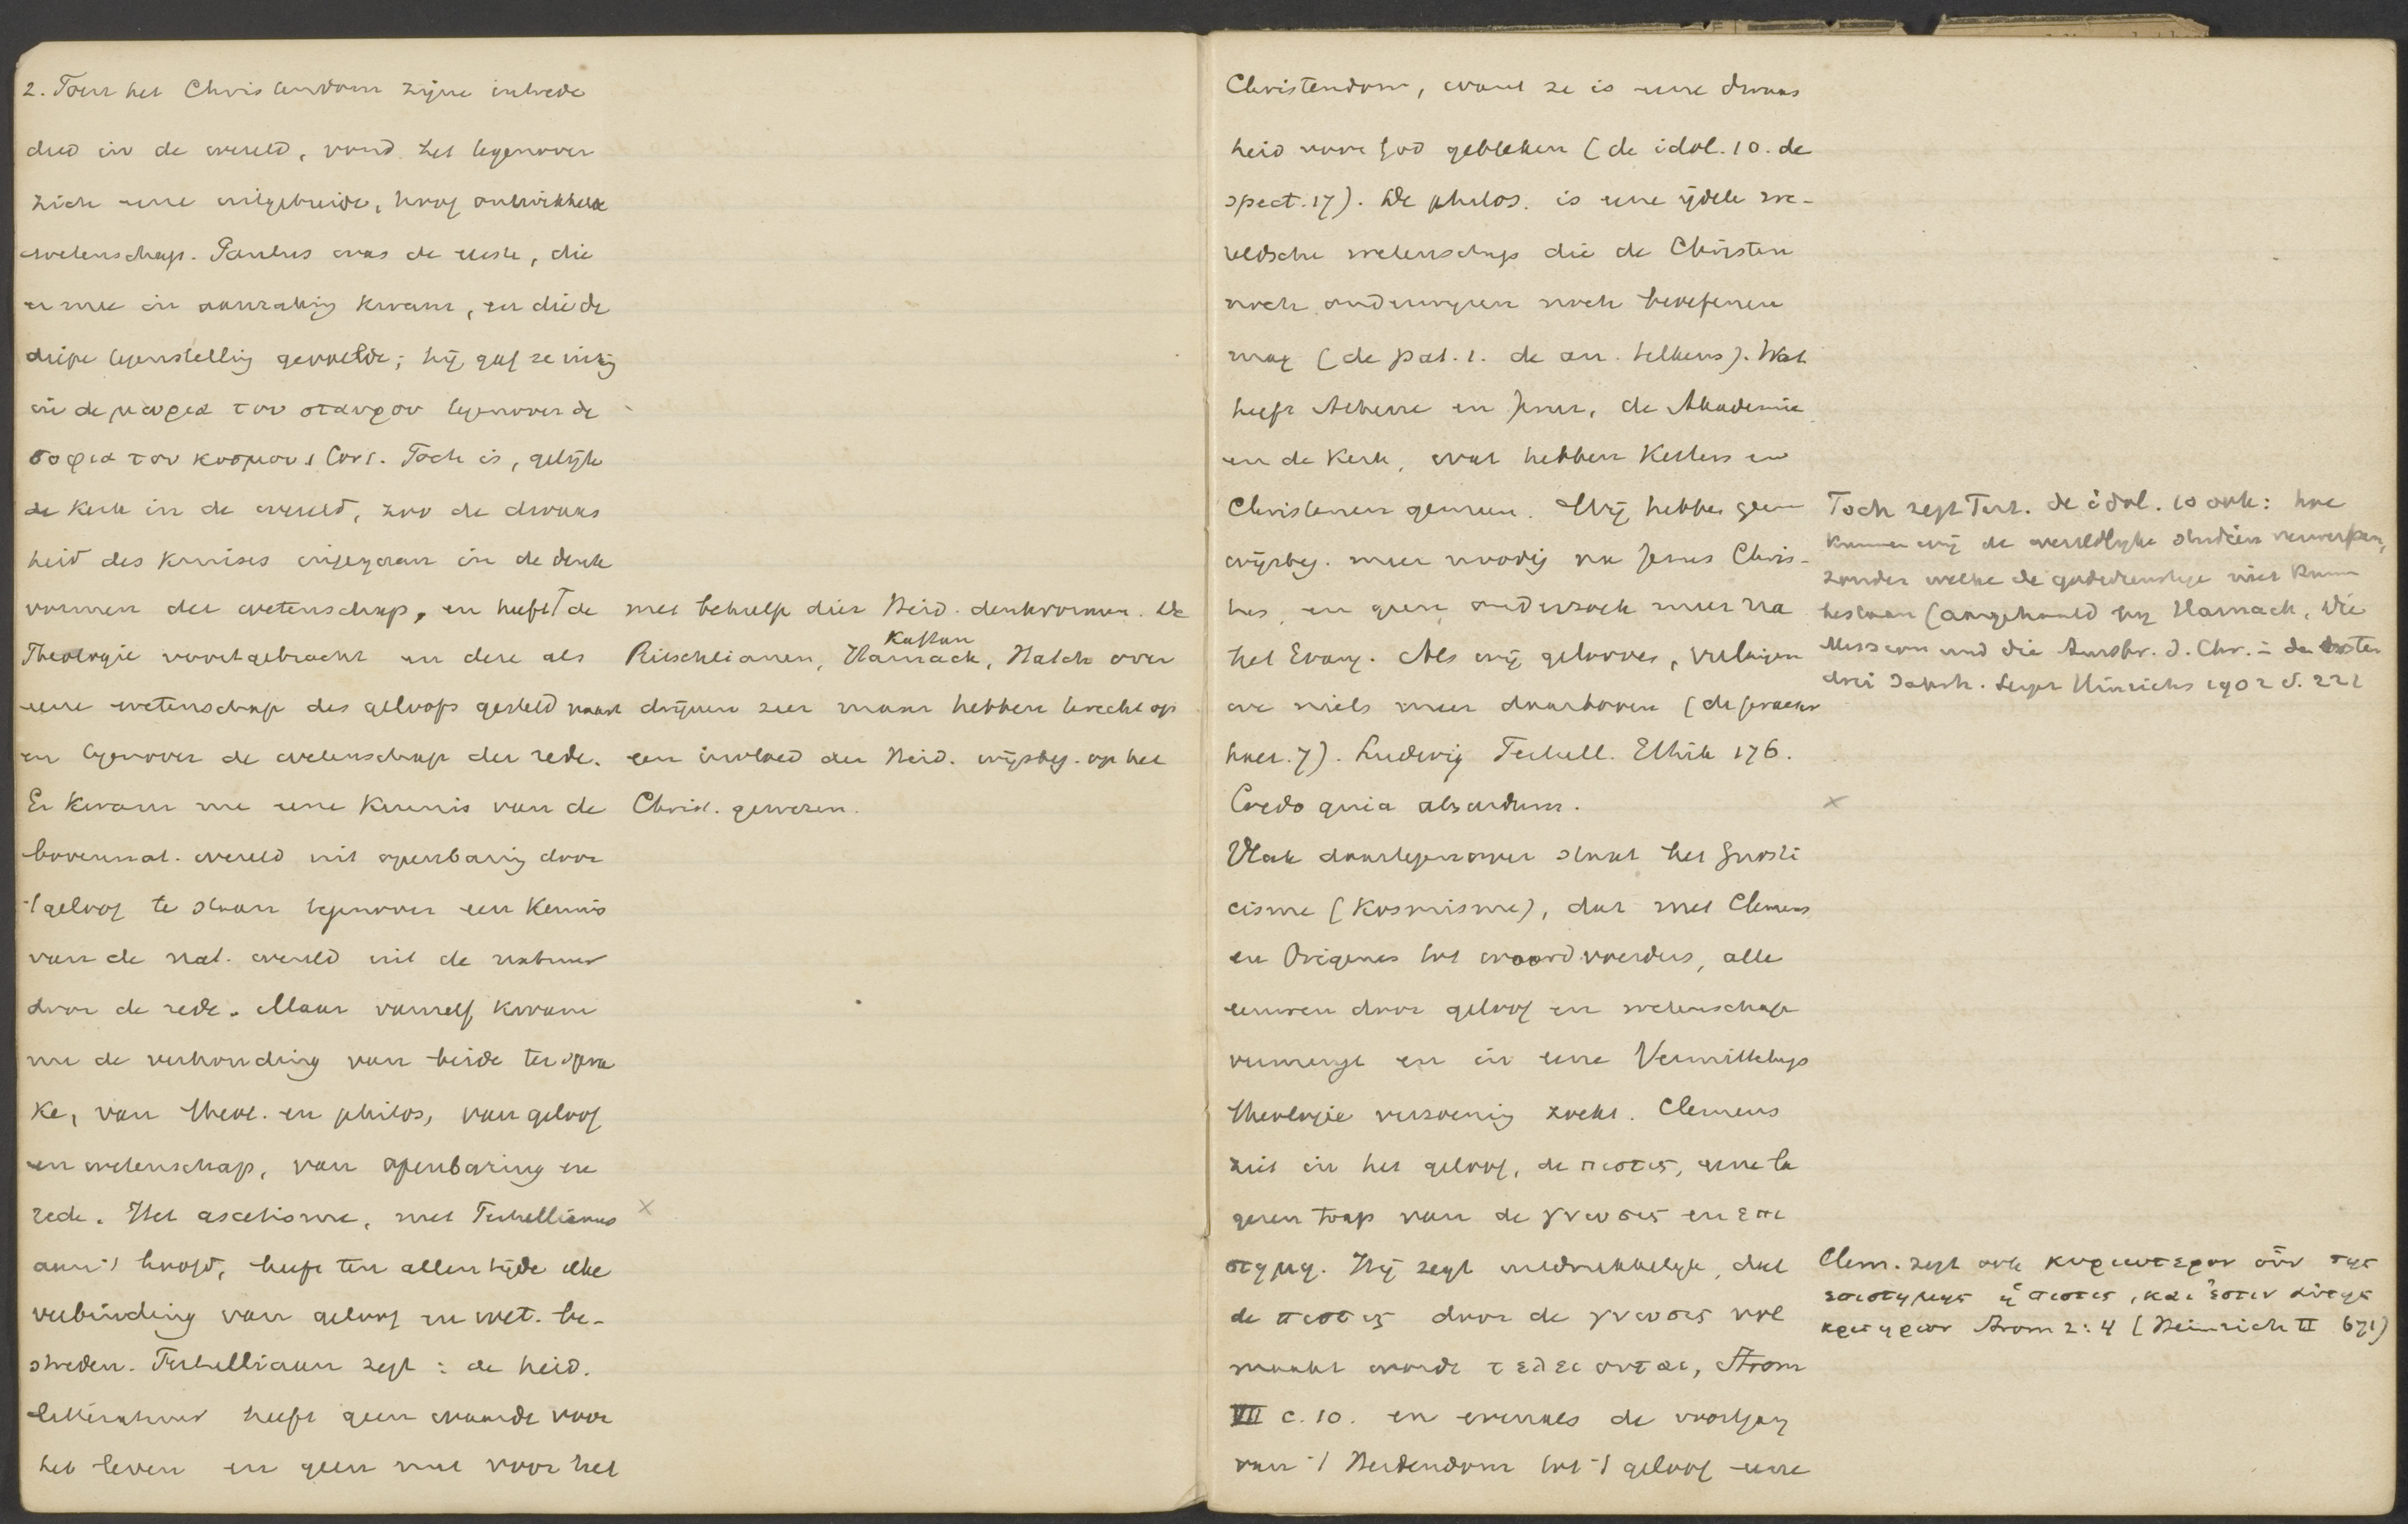 2. Toen het Christendom zijne intrede
deed in de wereld, vond het tegenover
zich eene uitgebreide, hoog ontwikkelde
wetenschap. Paulus was de eerste, die
er mee in aanraking kwam, en die de
diepe tegenstelling gevoelde; hij gaf ze
in de μωρια του σταυρου tegenover de
σοφια του κοσμου 1 Cor 1. Toch is, gelijk
de Kerk in de wereld, zoo de dwaas
heid des Kruises ingegaan in de denk
vormen der wetenschap, en heeft de
Theologie voortgebracht en deze als
eene wetenschap des geloofs gesteld naast
en tegenover de wetenschap der rede.
Er kwam nu eene Kennis van de
bovennat. wereld uit openbaring door
't geloof te staan tegenover een Kennis
van de nat. wereld uit de natuur
door de rede. Maar vanzelf kwam
nu de verhouding van beide ter spra
ke, van theol. en philos, van geloof
en wetenschap, van openbaring en
rede. Het ascetisme, met Tertullianus
aan 't hoofd, heeft ten allen tijde elke
verbinding van geloof en wet. be-
streden. Tertulliaan zegt: de heid.
litteratuur heeft geen waarde voor
het leven en geen nut voor het
met behulp dier Heid. denkvormen. De
Kaftan
Ritschlianen, Harnack, Hatch over
drijven zeer maar hebben terecht op
een invloed der Heid. wijsbeg. op het
Christ. gewezen.
×
Christendom, want ze is eene dwaas
heid voor God gebleken (de idol. 10. de
spect. 17). De philos. is eene ijdele we-
reldsche wetenschap die de Christen
noch onderwijzen noch beoefenen
mag (de pat. 1. de an. telkens). Wat
heeft Athene en Jeruz, de Akademie
en de Kerk, wat hebben Ketters en
Christenen gemeen. Wij hebben geen
wijsbeg. meer noodig na Jezus Chris-
tus, en geen onderzoek meer na
het Evang. Als wij gelooven, verlangen
we niets meer daarboven (de praescr
haer. 7). Ludwig Tertull. Ethik 176.
Credo quia absurdum.
Vlak daartegenover staat het Gnosti
cisme (Kosmisme), dat met Clemens
en Origenes tot woordvoerders, alle
eeuwen door geloof en wetenschap
vermengt en in eene Vermittelungs
theologie verzoening zoekt. Clemens
ziet in het geloof, de πιστις, eene la
geren trap van de γνωσις en επι
στημη. Hij zegt uitdrukkelijk, dat
de πιστις door de γνωσις vol
maakt worde τελειουται, Strom
VII c. 10. en evenals de voortgang
van 't Heidendom tot 't geloof eene
Toch zegt Tert. de idol. 10 ook: hoe
kunnen wij de wereldlijke studiën verwerpen,
zonder welke de godsdienstige niet kunnen
bestaan (aangehaald bij Harnack, Die
Mission und die Ausbr. d. Chr. in den ersten
drei Jahrh. Leipz Hinrichs 1902 S. 222
×
Clem. zegt ook κυριωτερον οὖν της
επιστημης ἡ πιστις, και ἐστιν αὐτης
κριτηριον Strom 2:4 (Heinrich II 671)